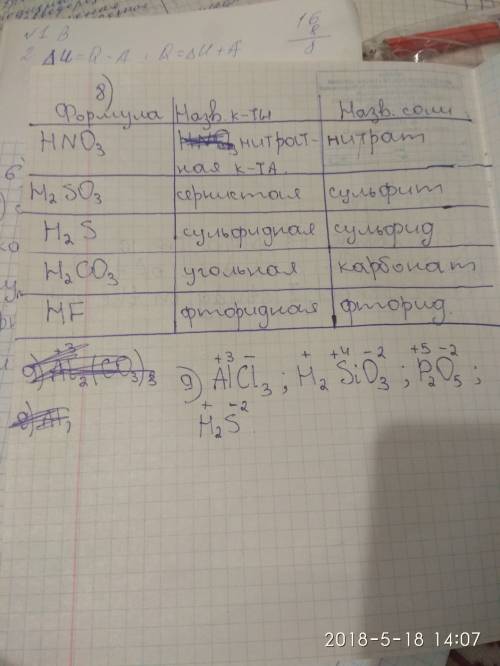 √1 В
16
2. ΔU = Q - A , Q = ΔU + A
8
8)
Формула Назв. к-ты Назв. соли
HNO3 нитрат- нитрат
ная к-та.
H2SO3 сернистая сульфит
H2S сульфидная сульфид
H2CO3 угольная карбонат
HF фторидная фторид.
+3 +3 - + +4 -2 +5 -2
9) Al2(CO3)3 9) AlCl3 ; H2SiO3 ; P2O5 ;
+ -2
H2S
2018-5-18 14:07